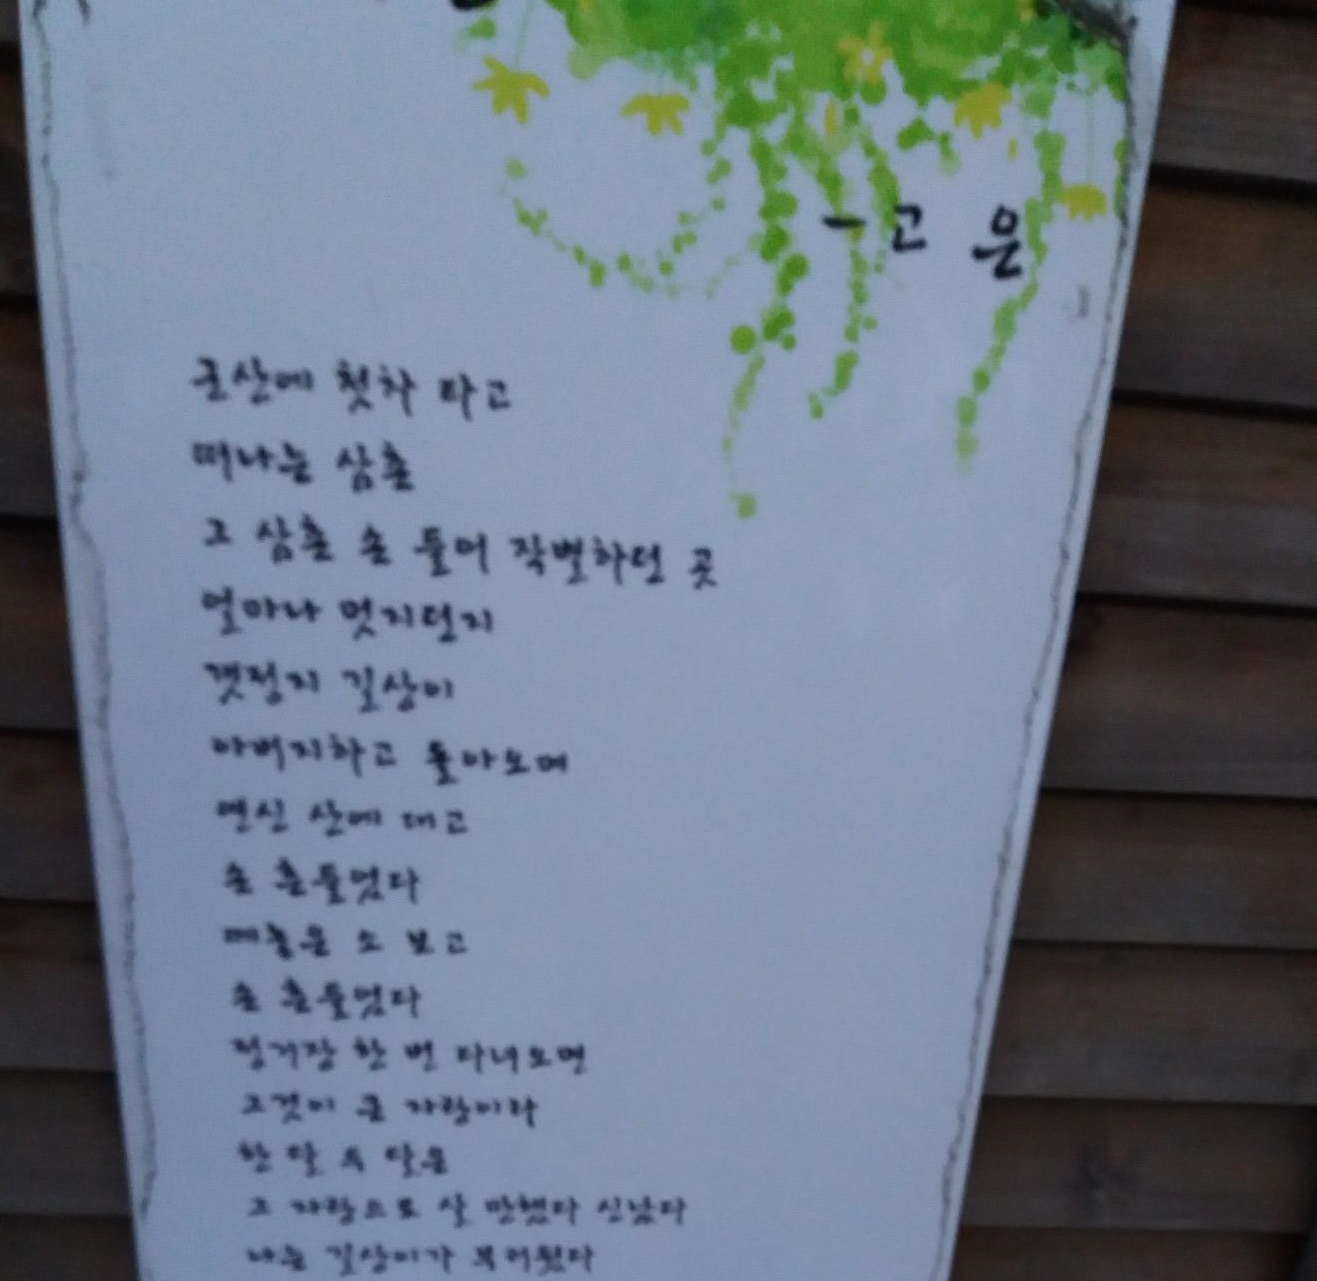 - 고 은
군산에 첫차 타고
떠나는 삼촌
그 삼촌 손 들어 작별하던 곳
얼마나 멋지던지
갯정지 길상이
아버지하고 돌아오며
연신 산에 대고
손 흔들었다
매놓은 소 보고
손 흔들었다
정거장 한 번 다녀오면
그것이 큰 자랑이라
한 달 두 달은
그 자랑으로 살 만했다 신났다
나는 길상이가 부러웠다